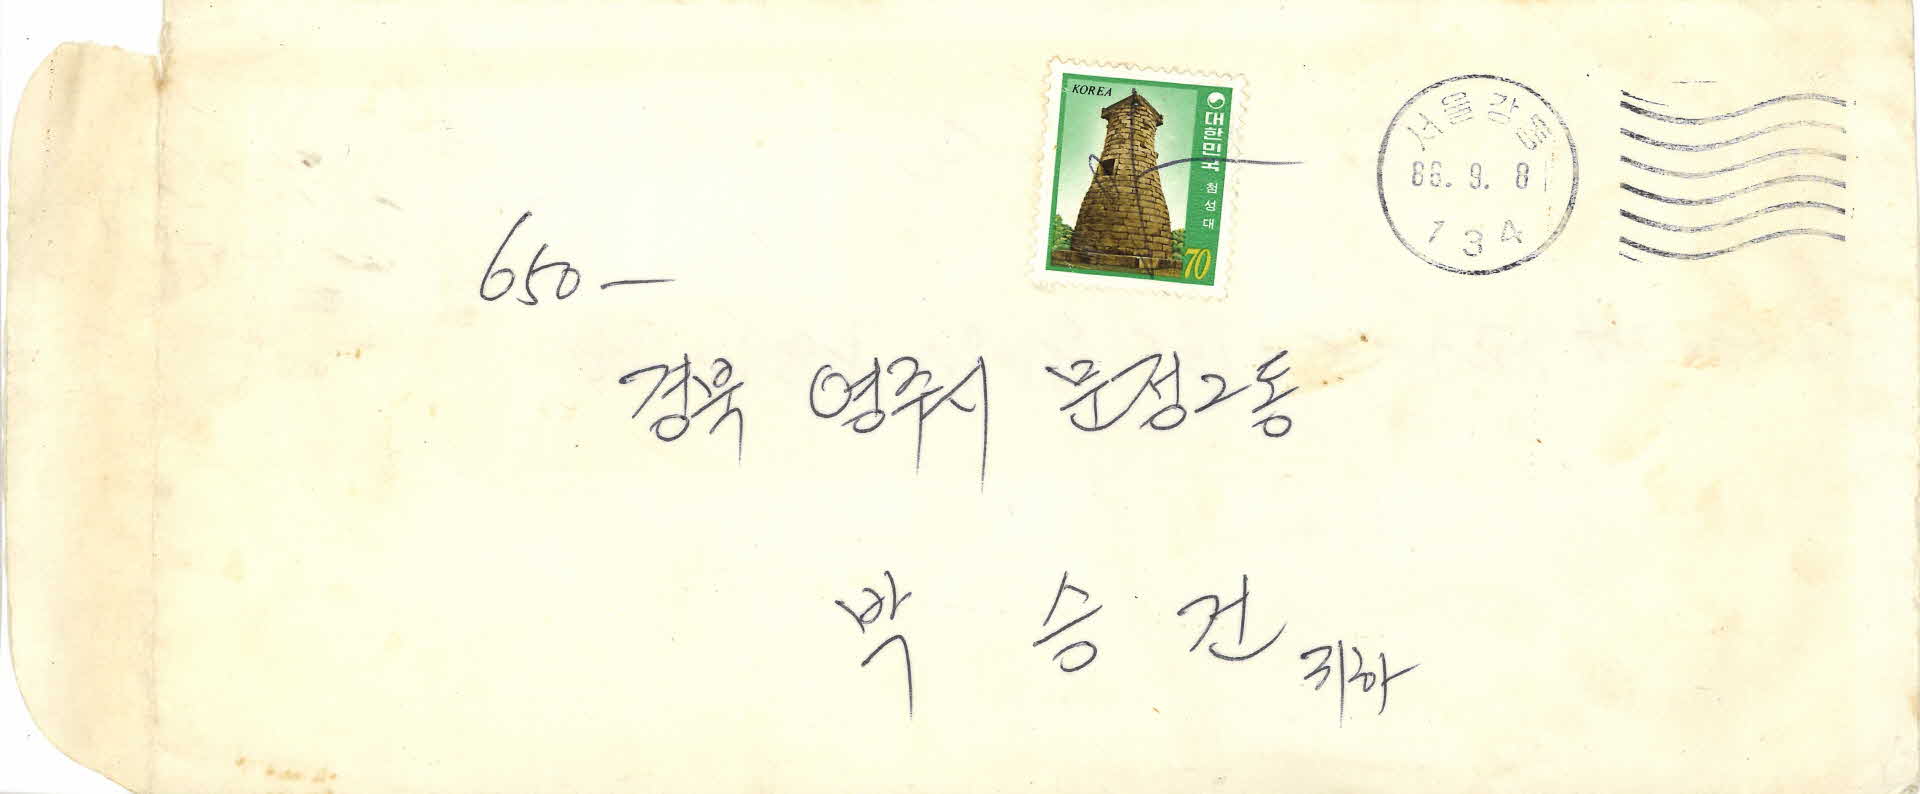 KOREA
대한민국 첨성대
70
서울강동
86. 9. 8
134
650-
경북 영주시 문정2동
박 승 건 귀하